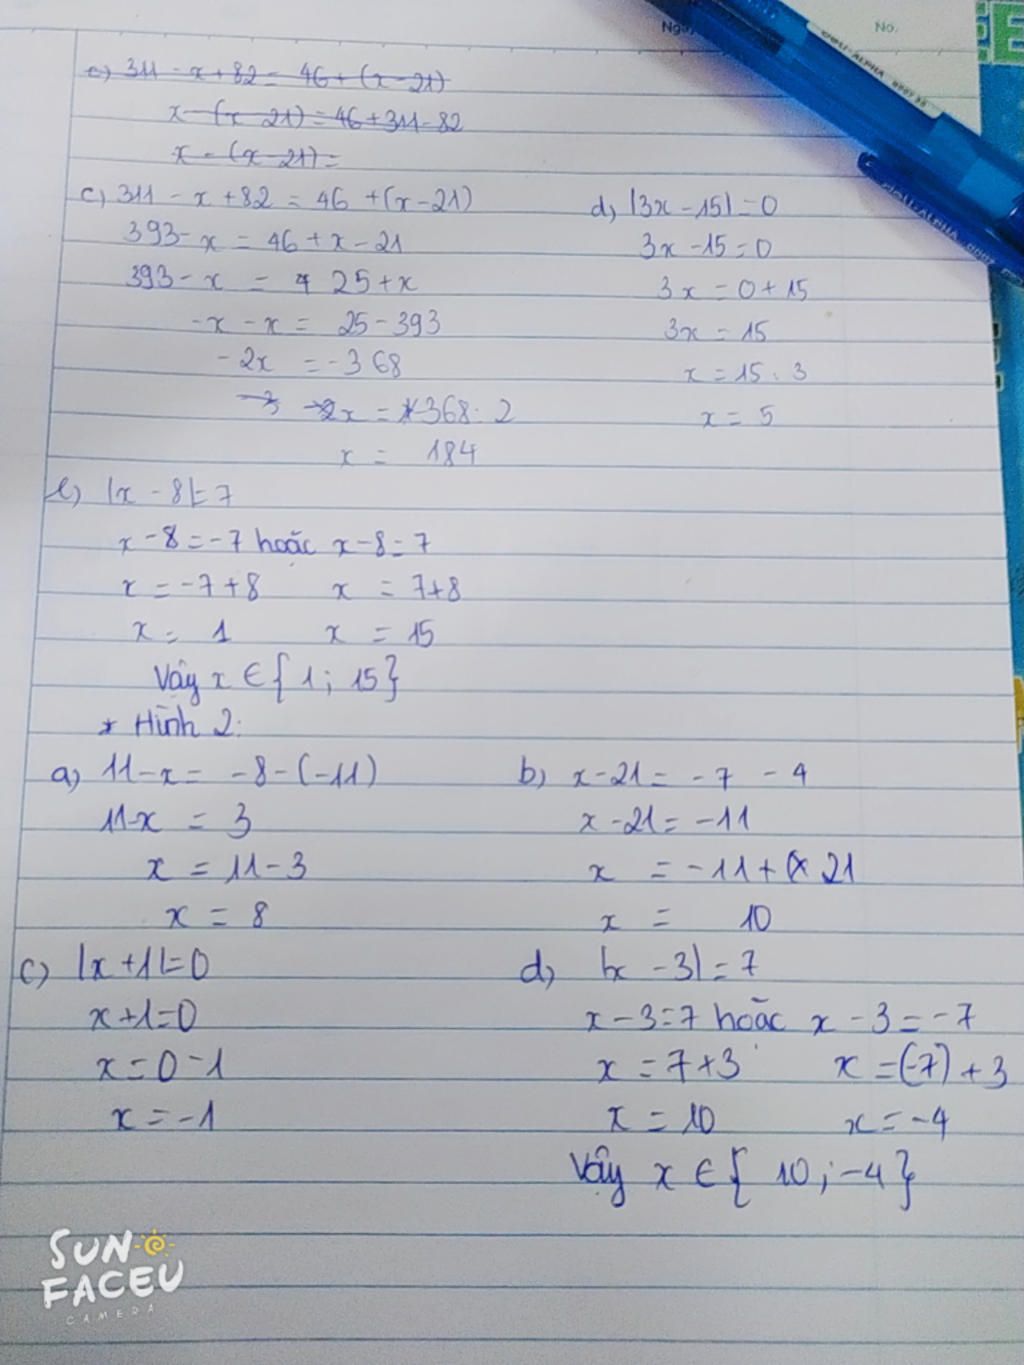 Ngày
No.
DELI-ALPHA
c) 311 - x + 82 = 46 + (x - 21)
x - (x - 21) = 46 + 311 - 82
x - (x - 21) =
c) 311 - x + 82 = 46 + (x - 21)
393 - x = 46 + x - 21
393 - x = 25 + x
- x - x = 25 - 393
- 2x = - 368
x = 368 : 2
x = 184
d) |3x - 15| = 0
3x - 15 = 0
3x = 0 + 15
3x = 15
x = 15 : 3
x = 5
e) |x - 8| = 7
x - 8 = -7 hoăc x - 8 = 7
x = -7 + 8 x = 7 + 8
x = 1 x = 15
Vây x ∈ { 1 ; 15 }
* Hình 2:
a) 11 - x = -8 - (-11)
11 - x = 3
x = 11 - 3
x = 8
b) x - 21 = -7 - 4
x - 21 = -11
x = -11 + 21
x = 10
c) |x + 1| = 0
x + 1 = 0
x = 0 - 1
x = -1
d) |x - 3| = 7
x - 3 = 7 hoăc x - 3 = -7
x = 7 + 3 x = (-7) + 3
x = 10 x = -4
Vậy x ∈ { 10 ; -4 }
SUN
FACEU
CAMERA